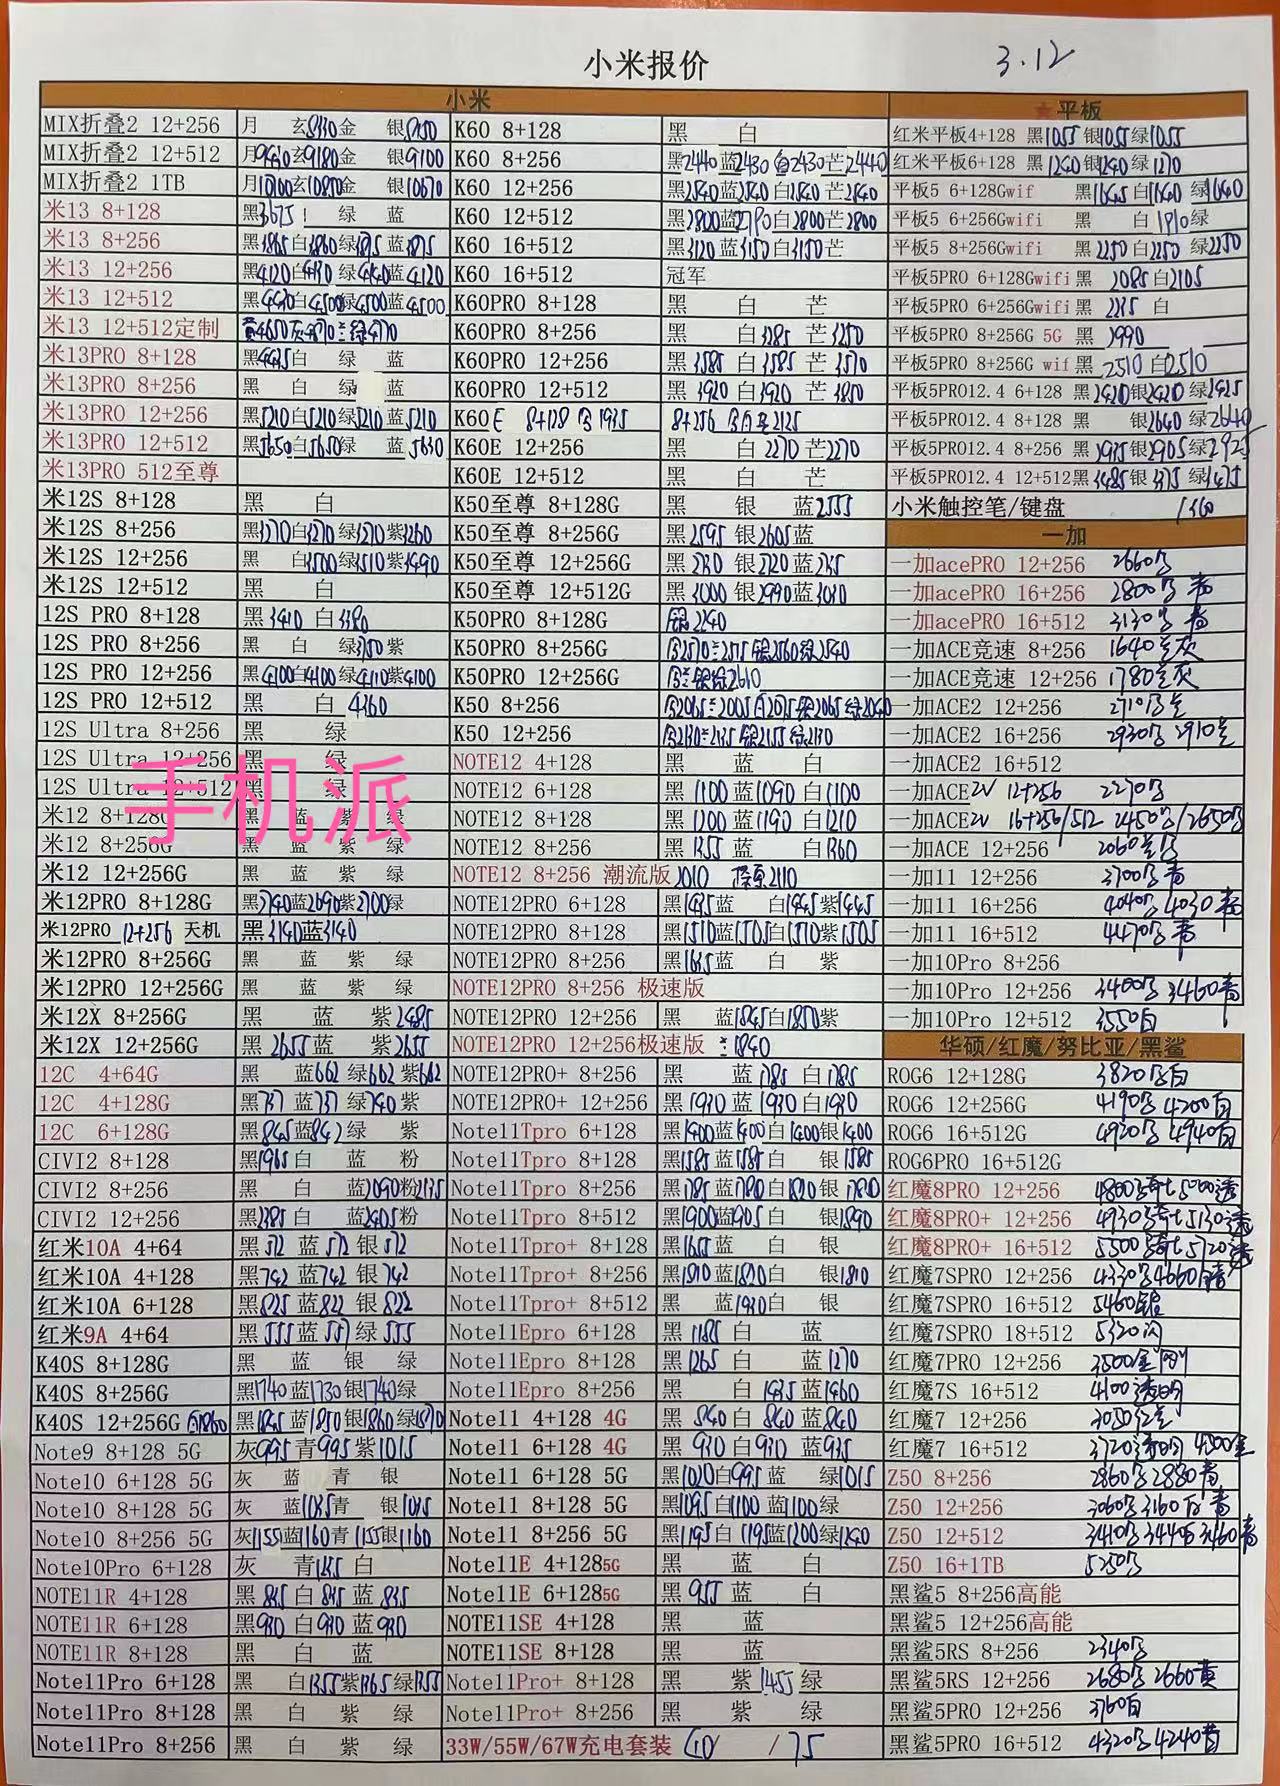 小米报价 3.12
小米
MIX折叠2 12+256 月 玄8930金 银8950
MIX折叠2 12+512 月9430玄9180金 银9100
MIX折叠2 1TB 月10700玄10850金 银10670
米13 8+128 黑3675 绿 蓝
米13 8+256 黑3865白3860绿3895蓝3875
米13 12+256 黑4120白 绿 蓝4120
米13 12+512 黑4490白4500绿4500蓝4500
米13 12+512定制
米13PRO 8+128 黑 白 绿 蓝
米13PRO 8+256 黑 白 绿 蓝
米13PRO 12+256 黑5210白5210绿5210蓝5210
米13PRO 12+512 黑5650白5650绿 蓝5630
米13PRO 512至尊
米12S 8+128 黑 白
米12S 8+256 黑3270白3270绿3270紫3260
米12S 12+256 黑 白3500绿3510紫3490
米12S 12+512 黑 白
12S PRO 8+128 黑3410 白3380
12S PRO 8+256 黑 白 绿3750紫
12S PRO 12+256 黑4100白4100绿4110紫4100
12S PRO 12+512 黑 白4360
12S Ultra 8+256 黑 绿
12S Ultra 12+256 黑 绿
12S Ultra 12+512 黑 绿
手机派
米12 8+128G 黑 蓝 紫 绿
米12 8+256G 黑 蓝 紫 绿
米12 12+256G 黑 蓝 紫 绿
米12PRO 8+128G 黑2740蓝2690紫2700绿
米12PRO 12+256 天机 黑3140蓝3140
米12PRO 8+256G 黑 蓝 紫 绿
米12PRO 12+256G 黑 蓝 紫 绿
米12X 8+256G 黑 蓝 紫2485
米12X 12+256G 黑2655蓝 紫2655
12C 4+64G 黑 蓝662 绿662 紫662
12C 4+128G 黑737蓝737绿740紫
12C 6+128G 黑845蓝842绿 紫
CIVI2 8+128 黑1965白 蓝 粉
CIVI2 8+256 黑 白 蓝2090粉2135
CIVI2 12+256 黑2385白 蓝2405粉
红米10A 4+64 黑572 蓝572 银572
红米10A 4+128 黑742 蓝742 银742
红米10A 6+128 黑825 蓝822 银822
红米9A 4+64 黑555蓝557绿555
K40S 8+128G 黑 蓝 银 绿
K40S 8+256G 黑1740蓝1730银1740绿
K40S 12+256G 白1860 黑1845蓝1850银1860绿1870
Note9 8+128 5G 灰995青995紫1015
Note10 6+128 5G 灰 蓝 青 银
Note10 8+128 5G 灰 蓝1035青 银1015
Note10 8+256 5G 灰1155蓝1160青1155银1160
Note10Pro 6+128 灰 青1245 白
NOTE11R 4+128 黑845 白845 蓝845
NOTE11R 6+128 黑930 白930 蓝930
NOTE11R 8+128 黑 白 蓝
Note11Pro 6+128 黑 白1355紫1365绿1355
Note11Pro 8+128 黑 白 紫 绿
Note11Pro 8+256 黑 白 紫 绿
K60 8+128 黑 白
K60 8+256 黑2440蓝2430白2430芒2440
K60 12+256 黑2540蓝2540白2540芒2540
K60 12+512 黑2800蓝2790白2800芒2800
K60 16+512 黑3120蓝3150白3150芒
K60 16+512 冠军
K60PRO 8+128 黑 白 芒
K60PRO 8+256 黑 白3285 芒3250
K60PRO 12+256 黑3585 白3585 芒3570
K60PRO 12+512 黑3920 白3920 芒3850
K60E 8+128 1935 8+256 2125
K60E 12+256 黑 白2270芒2270
K60E 12+512 黑 白 芒
K50至尊 8+128G 黑 银 蓝2555
K50至尊 8+256G 黑2595 银2605蓝
K50至尊 12+256G 黑 银2720蓝
K50至尊 12+512G 黑3000 银2990蓝3010
K50PRO 8+128G 银2240
K50PRO 8+256G
K50PRO 12+256G 2610
K50 8+256
K50 12+256
NOTE12 4+128 黑 蓝 白
NOTE12 6+128 黑1100蓝1090 白1100
NOTE12 8+128 黑1200蓝1190 白1210
NOTE12 8+256 黑1355蓝 白1360
NOTE12 8+256 潮流版2010 2110
NOTE12PRO 6+128 黑1435蓝 白1445紫1445
NOTE12PRO 8+128 黑1510蓝1505白1510紫1505
NOTE12PRO 8+256 黑1635蓝 白 紫
NOTE12PRO 8+256 极速版
NOTE12PRO 12+256 黑 蓝1845白1850紫
NOTE12PRO 12+256极速版 1840
NOTE12PRO+ 8+256 黑 蓝1785 白1785
NOTE12PRO+ 12+256 黑1930蓝1930白1930
Note11Tpro 6+128 黑1400蓝1400白1400银1400
Note11Tpro 8+128 黑1585蓝1585白 银1585
Note11Tpro 8+256 黑1785蓝1780白1810银1780
Note11Tpro 8+512 黑1900蓝1905白 银1890
Note11Tpro+ 8+128 黑1655蓝 白 银
Note11Tpro+ 8+256 黑1810蓝1820白 银1810
Note11Tpro+ 8+512 黑 蓝1930白 银
Note11Epro 6+128 黑1185白 蓝
Note11Epro 8+128 黑1265白 蓝1270
Note11Epro 8+256 黑 白1435蓝1460
Note11 4+128 4G 黑840白840蓝840
Note11 6+128 4G 黑930白930蓝935
Note11 6+128 5G 黑1020白995蓝 绿1015
Note11 8+128 5G 黑1095白1100蓝1100绿
Note11 8+256 5G 黑1195白1195蓝1200绿1240
Note11E 4+1285G 黑 蓝 白
Note11E 6+1285G 黑955蓝 白
NOTE11SE 4+128 黑 蓝
NOTE11SE 8+128 黑 蓝
Note11Pro+ 8+128 黑 紫1455绿
Note11Pro+ 8+256 黑 紫 绿
33W/55W/67W充电套装 60/ /75
★平板
红米平板4+128 黑1055银1055绿1055
红米平板6+128 黑1240银1240绿1270
平板5 6+128Gwif 黑1645白1640绿1640
平板5 6+256Gwifi 黑 白1910绿
平板5 8+256Gwifi 黑2250白2250绿2250
平板5PRO 6+128Gwifi 黑 2085白2105
平板5PRO 6+256Gwifi 黑 2235 白
平板5PRO 8+256G 5G 黑 2990
平板5PRO 8+256G wif 黑 2510 白2510
平板5PRO12.4 6+128 黑2420银2420绿2425
平板5PRO12.4 8+128 黑 银2640绿2640
平板5PRO12.4 8+256 黑2935银2905绿2925
平板5PRO12.4 12+512黑3485银3475绿3475
小米触控笔/键盘 /360
一加
一加acePRO 12+256 2660
一加acePRO 16+256 2800 青
一加acePRO 16+512 3130 青
一加ACE竞速 8+256 1640 灰
一加ACE竞速 12+256 1780 灰
一加ACE2 12+256 2710
一加ACE2 16+256 2930 2910
一加ACE2 16+512
一加ACE2V 12+256 2270
一加ACE2V 16+256/512 2450/2650
一加ACE 12+256 2060
一加11 12+256 3700 青
一加11 16+256 4040 4030青
一加11 16+512 4470 青
一加10Pro 8+256
一加10Pro 12+256 3400 3460青
一加10Pro 12+512 3550白
华硕/红魔/努比亚/黑鲨
ROG6 12+128G 3820 白
ROG6 12+256G 4190 4200白
ROG6 16+512G 4920 4940白
ROG6PRO 16+512G
红魔8PRO 12+256 4800 5000透
红魔8PRO+ 12+256 4930 5130透
红魔8PRO+ 16+512 5500 5720透
红魔7SPRO 12+256 4330 4660
红魔7SPRO 16+512 5460银
红魔7SPRO 18+512 5320闪
红魔7PRO 12+256 3500
红魔7S 16+512 4100透明
红魔7 12+256 3050红蓝
红魔7 16+512 3720透明 4300金
Z50 8+256 2860 2880青
Z50 12+256 3060 3160白 青
Z50 12+512 3410 3440白 3460青
Z50 16+1TB 5250
黑鲨5 8+256高能
黑鲨5 12+256高能
黑鲨5RS 8+256 2340
黑鲨5RS 12+256 2680 2660黄
黑鲨5PRO 12+256 3760白
黑鲨5PRO 16+512 4320 4240